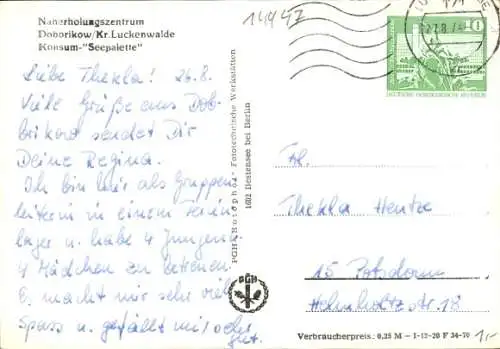 Naherholungszentrum
Dobbrikow/Kr. Luckenwalde
Konsum-"Seepalette"
14942
Liebe Thekla! 26.8.
Viele Grüße aus Dob-
brikow sendet Dir
Deine Regina.
Ich bin hier als Gruppen
leiterin in einem Ferien
lager u. habe 4 Jungen u.
4 Mädchen zu betreuen.
Es macht mir sehr viel
Spass u. gefällt mir sehr
gut.
PGH "Fototechnische Werkstätten
1602 Bestensee bei Berlin
PGH
DEUTSCHE DEMOKRATISCHE REPUBLIK
Frl.
Thekla Hentze
15 Potsdam
Helmholtzstr. 18
Verbraucherpreis: 0,25 M – I-12-20 F 34-70
1,-